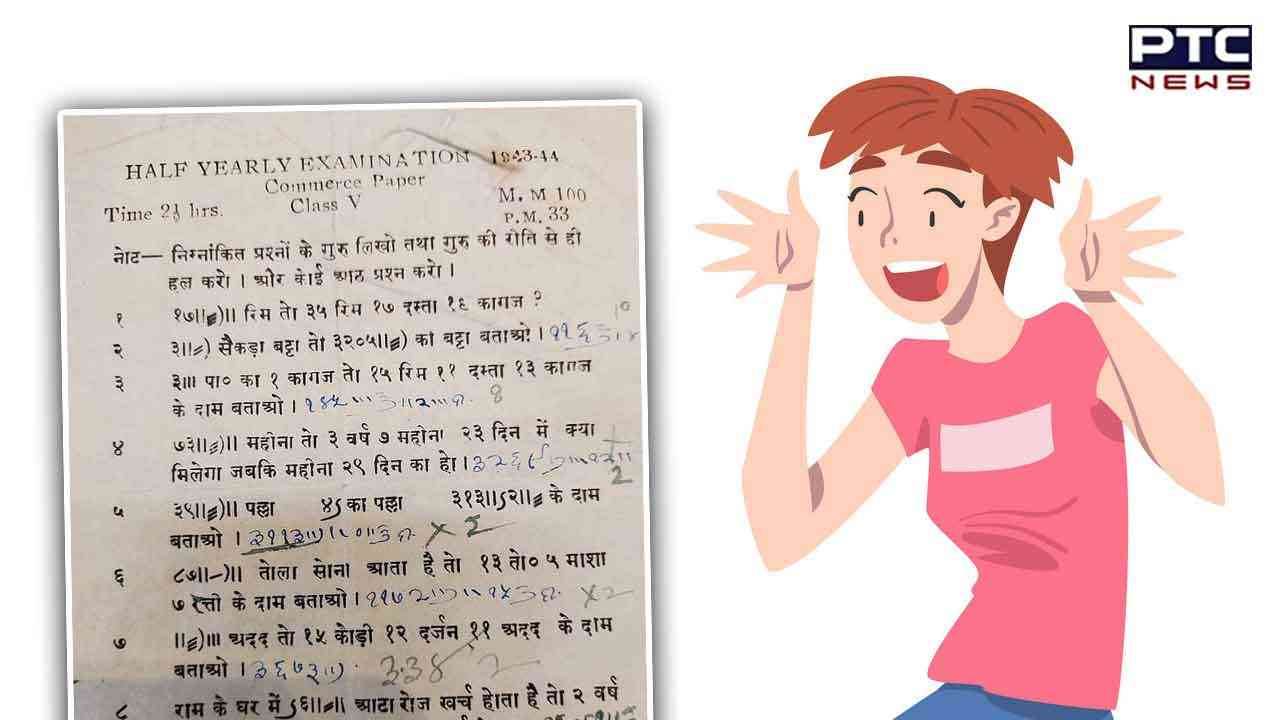 PTC
NEWS
HALF YEARLY EXAMINATION 1943-44
Commerce Paper
Time 2½ hrs. Class V M. M 100
P. M. 33
नोट— निम्नांकित प्रश्नों के गुरु लिखो तथा गुरु की रीति से ही
हल करो । और कोई आठ प्रश्न करो ।
१ १७॥≡)॥ रिम तो ३५ रिम १७ दस्ता १६ कागज ?
२ ३॥=) सैकड़ा बट्टा तो ३२०५॥≡) का बट्टा बताओ ।
३ ३॥। पा० का १ कागज तो १५ रिम ११ दस्ता १३ कागज
के दाम बताओ ।
४ ७३॥≡)॥ महीना तो ३ वर्ष ७ महीना २३ दिन में क्या
मिलेगा जबकि महीना २९ दिन का हो ।
५ ३९॥≡)॥ पल्ला ४ऽ का पल्ला ३१३॥ऽ२॥≡ के दाम
बताओ । × 2
६ ८७॥-)॥ तोला सोना आता है तो १३ तो० ५ माशा
७ रत्ती के दाम बताओ । ×2
७ ॥≡)॥। अदद तो १५ कोड़ी १२ दर्जन ११ अदद के दाम
बताओ ।
८ राम के घर में ऽ६॥=॥ आटा रोज खर्च होता है तो २ वर्ष